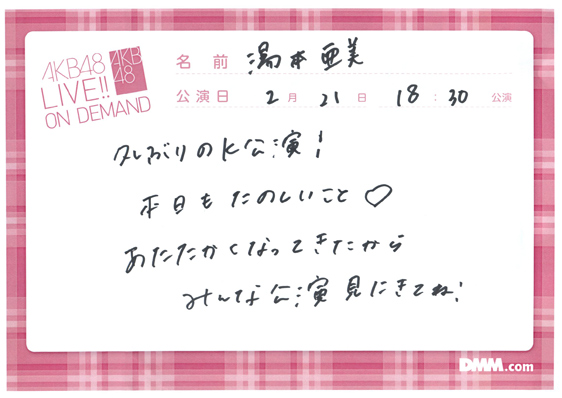 AKB48
LIVE!!
ON DEMAND
AKB
48
名前 湯本亜美
公演日 2月21日 18:30公演
久しぶりのK公演!
本日もたのしいこと♡
あたたかくなってきたから
みんな公演見にきてね!
DMM.com